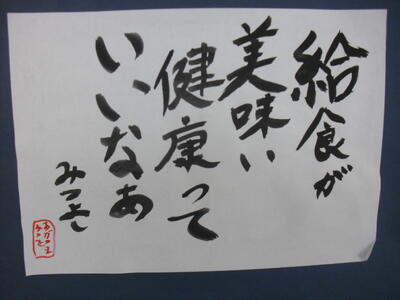 給食が
美味い
健康って
いいなあ
みつよし